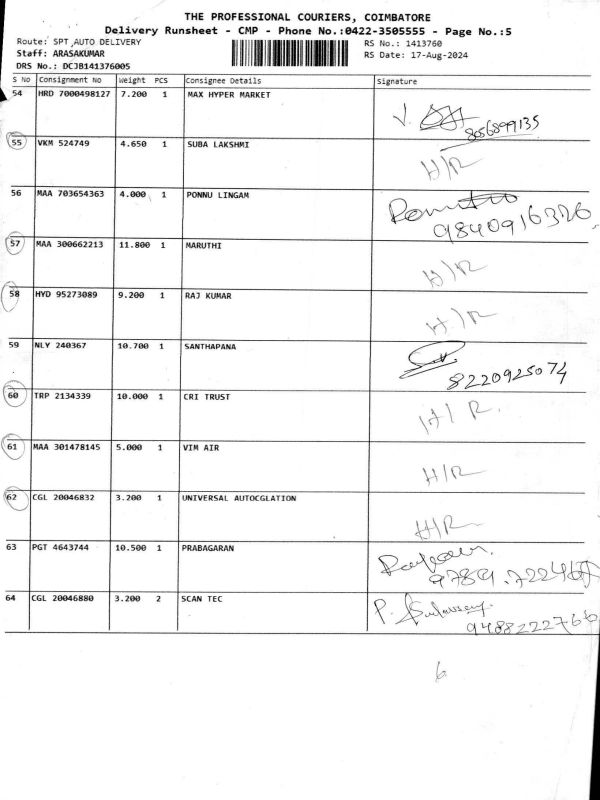 THE PROFESSIONAL COURIERS, COIMBATORE
Delivery Runsheet - CMP - Phone No.:0422-3505555 - Page No.:5
Route: SPT AUTO DELIVERY
RS No.: 1413760
Staff: ARASAKUMAR
RS Date: 17-Aug-2024
DRS No.: DCJB141376005
S No Consignment No Weight PCS Consignee Details Signature
54 HRD 7000498127 7.200 1 MAX HYPER MARKET
8056899135
55 VKM 524749 4.650 1 SUBA LAKSHMI H/R
56 MAA 703654363 4.000 1 PONNU LINGAM
9840916326
57 MAA 300662213 11.800 1 MARUTHI H/R
58 HYD 95273089 9.200 1 RAJ KUMAR H/R
59 NLY 240367 10.700 1 SANTHAPANA
8220925074
60 TRP 2134339 10.000 1 CRI TRUST H/R.
61 MAA 301478145 5.000 1 VIM AIR H/R
62 CGL 20046832 3.200 1 UNIVERSAL AUTOCGLATION H/R
63 PGT 4643744 10.500 1 PRABAGARAN
64 CGL 20046880 3.200 2 SCAN TEC P.
9488222766
6